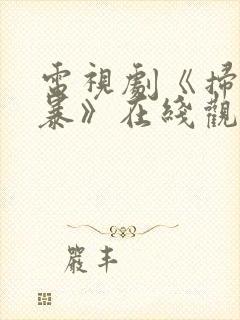 電視劇《掃
暴》在綫觀
嚴丰